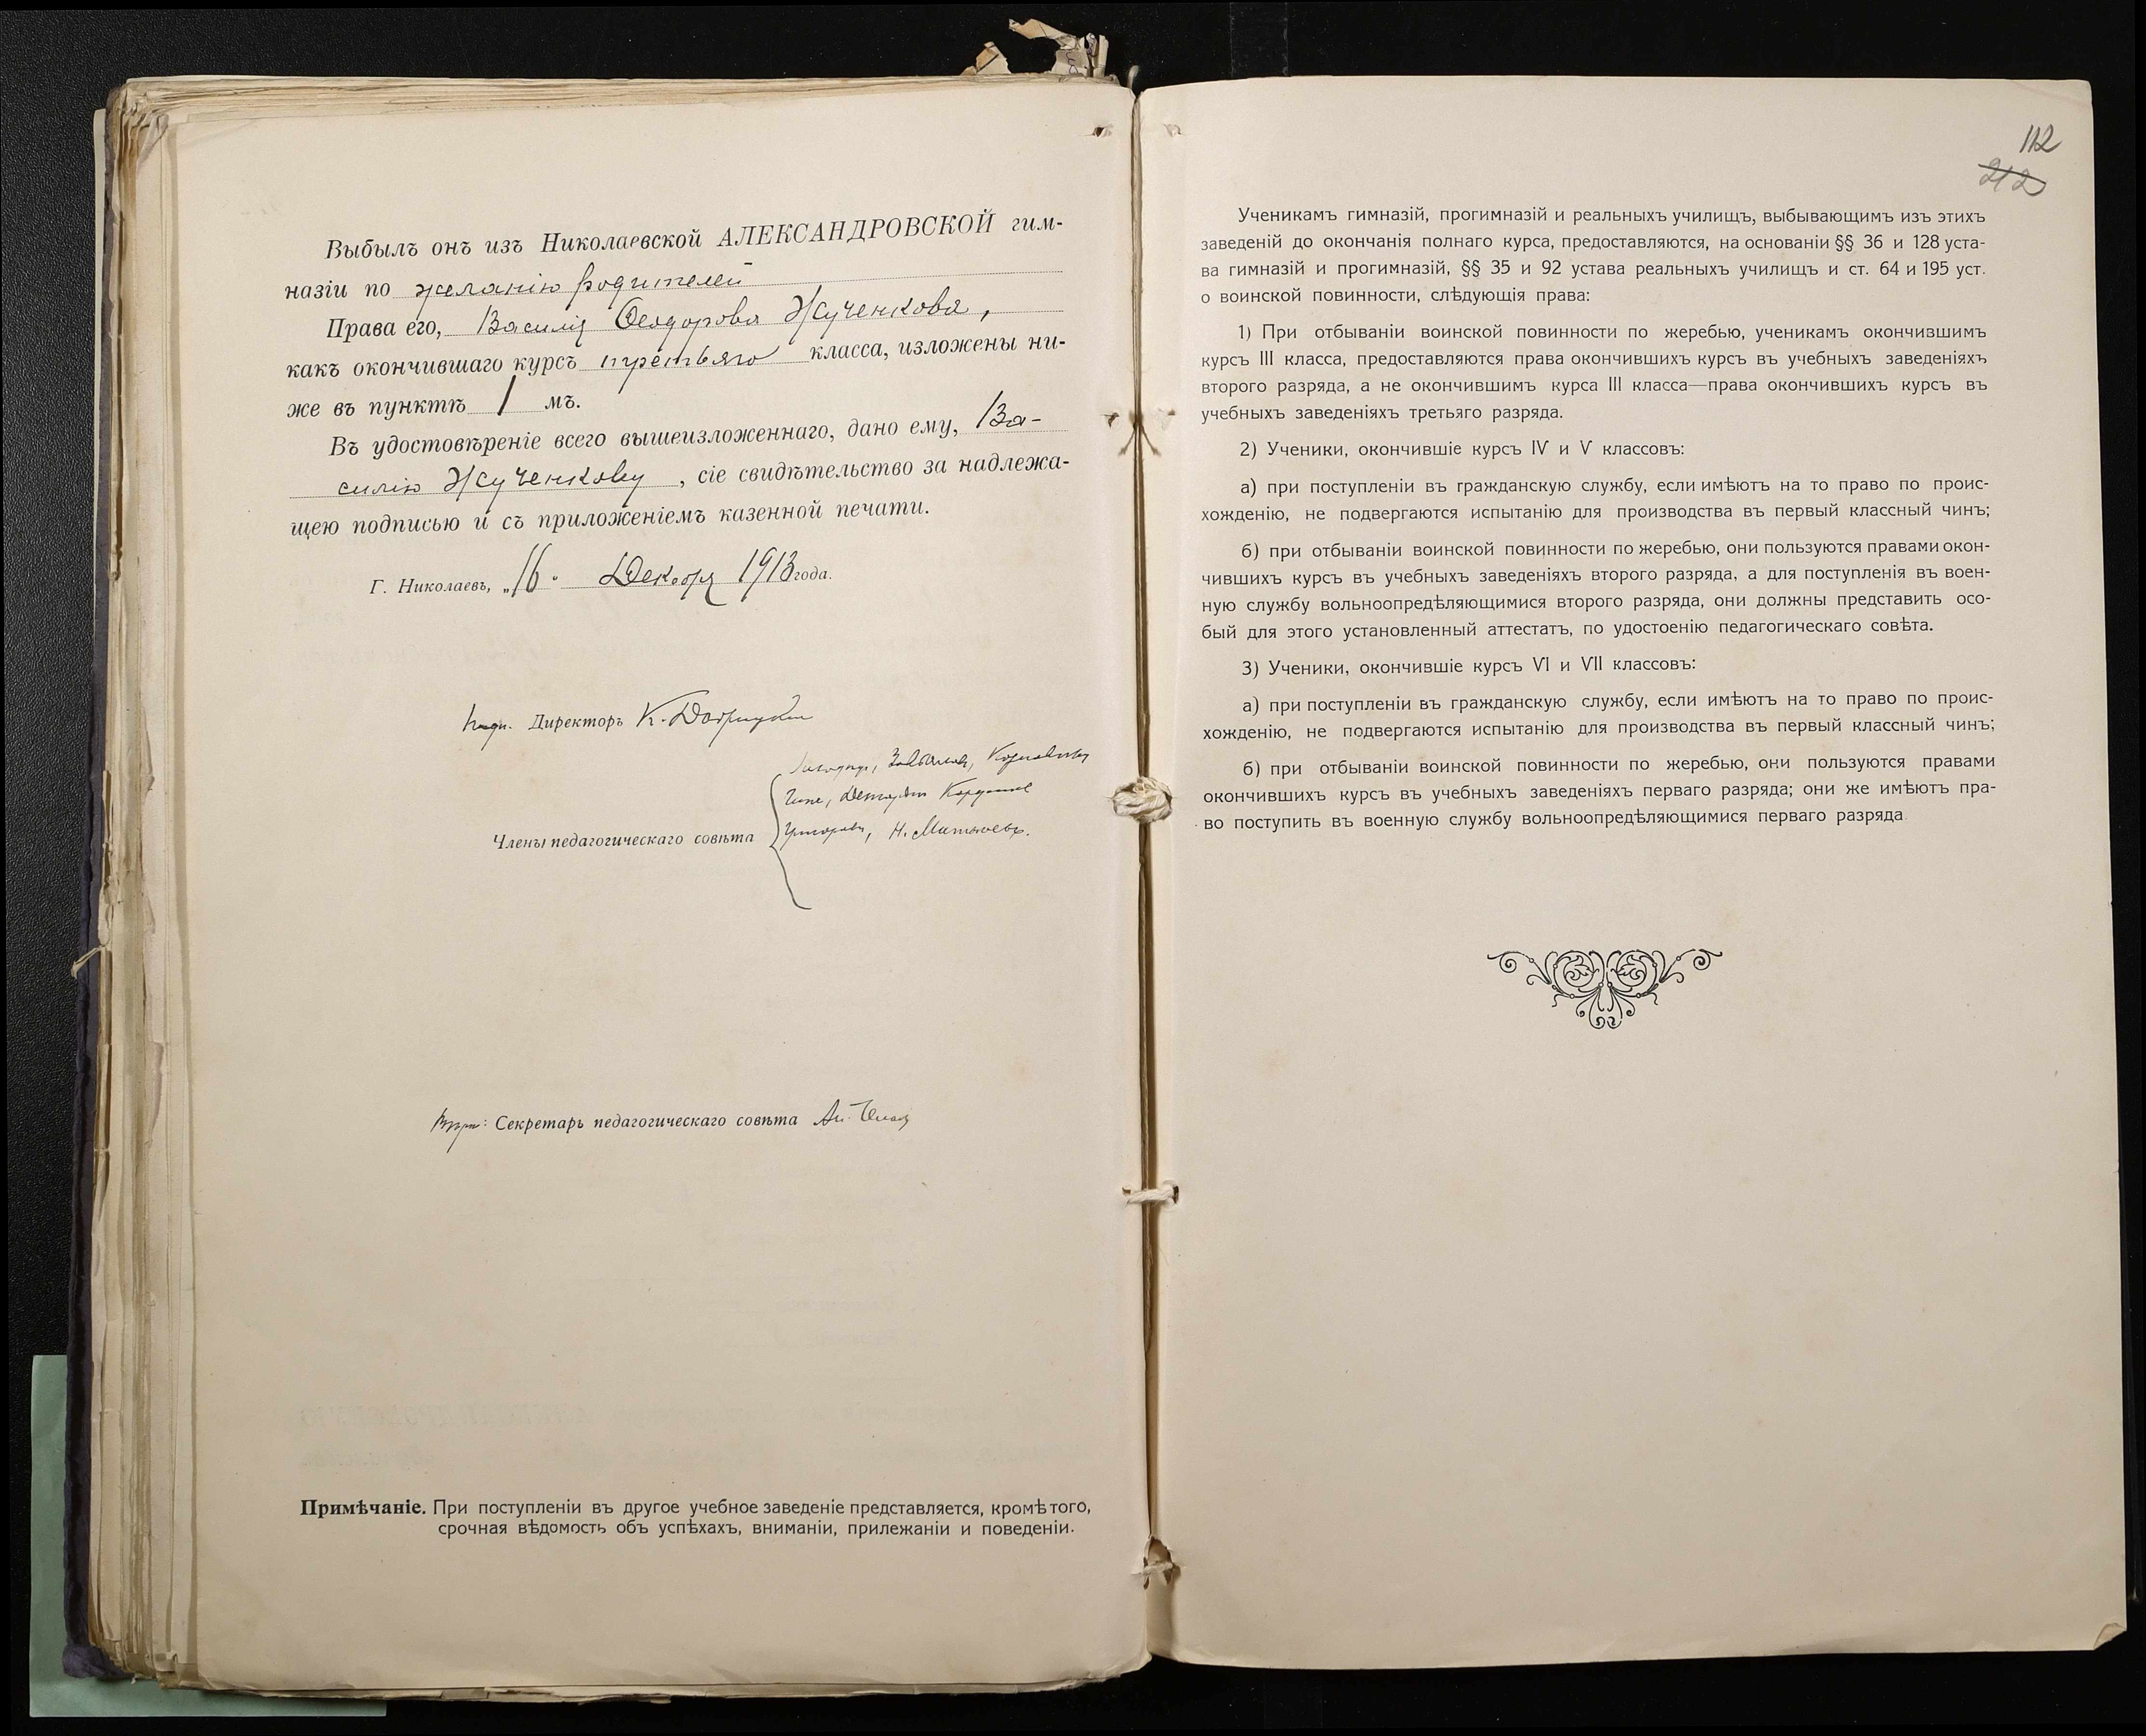 Выбылъ онъ изъ Николаевской АЛЕКСАНДРОВСКОЙ гим-
назіи по желанію родителей
Права его, Василія Ѳеодорова Жученкова,
какъ окончившаго курсъ третьяго класса, изложены ни-
же въ пунктѣ 1 мъ.
Въ удостовѣреніе всего вышеизложеннаго, дано ему, Ва-
силію Жученкову, сіе свидѣтельство за надлежа-
щею подписью и съ приложеніемъ казенной печати.
Г. Николаевъ, „16" Декабря 1913 года.
Директоръ К.
Члены педагогическаго совѣта
Н.
Секретарь педагогическаго совѣта
Примѣчаніе. При поступленіи въ другое учебное заведеніе представляется, кромѣ того,
срочная вѣдомость объ успѣхахъ, вниманіи, прилежаніи и поведеніи.
112
212
Ученикамъ гимназій, прогимназій и реальныхъ училищъ, выбывающимъ изъ этихъ
заведеній до окончанія полнаго курса, предоставляются, на основаніи §§ 36 и 128 уста-
ва гимназій и прогимназій, §§ 35 и 92 устава реальныхъ училищъ и ст. 64 и 195 уст.
о воинской повинности, слѣдующія права:
1) При отбываніи воинской повинности по жеребью, ученикамъ окончившимъ
курсъ III класса, предоставляются права окончившихъ курсъ въ учебныхъ заведеніяхъ
второго разряда, а не окончившимъ курса III класса—права окончившихъ курсъ въ
учебныхъ заведеніяхъ третьяго разряда.
2) Ученики, окончившіе курсъ IV и V классовъ:
а) при поступленіи въ гражданскую службу, если имѣютъ на то право по проис-
хожденію, не подвергаются испытанію для производства въ первый классный чинъ;
б) при отбываніи воинской повинности по жеребью, они пользуются правами окон-
чившихъ курсъ въ учебныхъ заведеніяхъ второго разряда, а для поступленія въ воен-
ную службу вольноопредѣляющимися второго разряда, они должны представить осо-
бый для этого установленный аттестатъ, по удостоенію педагогическаго совѣта.
3) Ученики, окончившіе курсъ VI и VII классовъ:
а) при поступленіи въ гражданскую службу, если имѣютъ на то право по проис-
хожденію, не подвергаются испытанію для производства въ первый классный чинъ;
б) при отбываніи воинской повинности по жеребью, они пользуются правами
окончившихъ курсъ въ учебныхъ заведеніяхъ перваго разряда; они же имѣютъ пра-
во поступить въ военную службу вольноопредѣляющимися перваго разряда